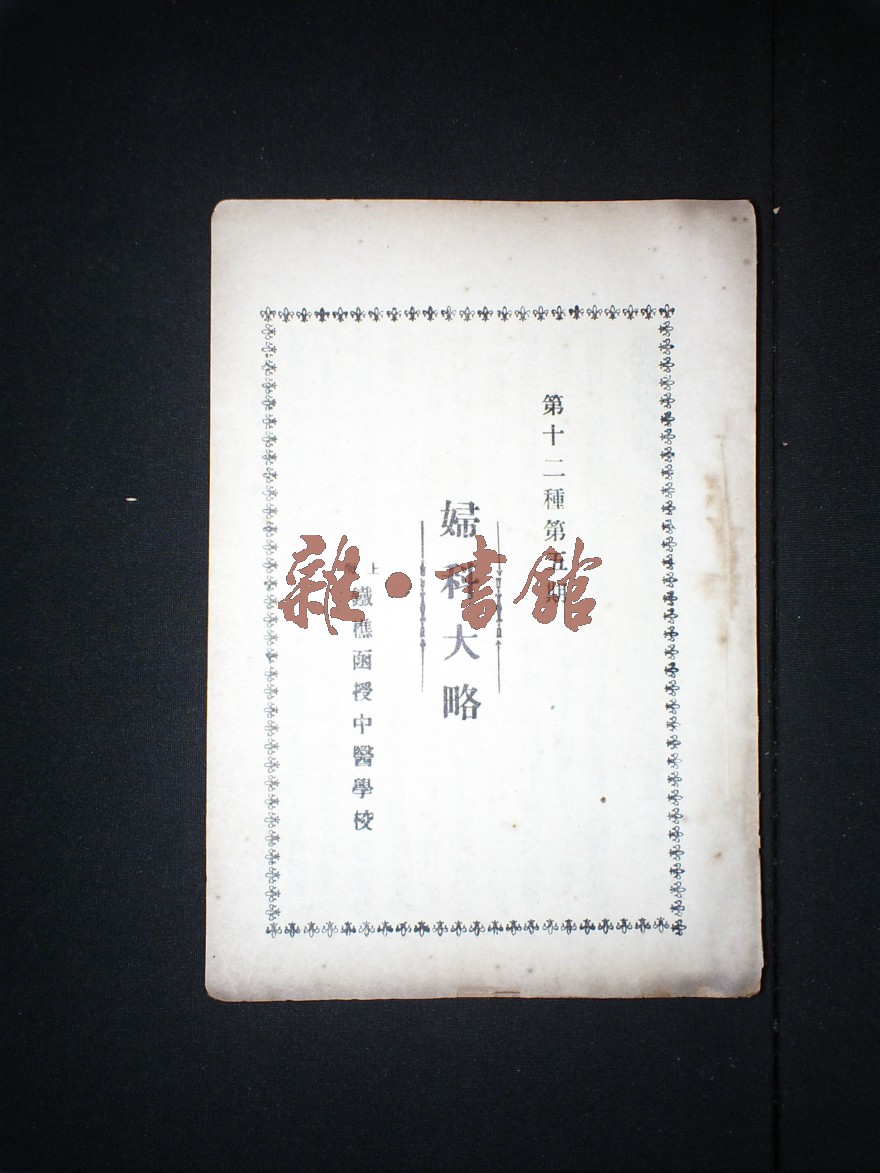 第十二種第五期
婦科大略
上海
鐵樵函授中醫學校
雜·書館